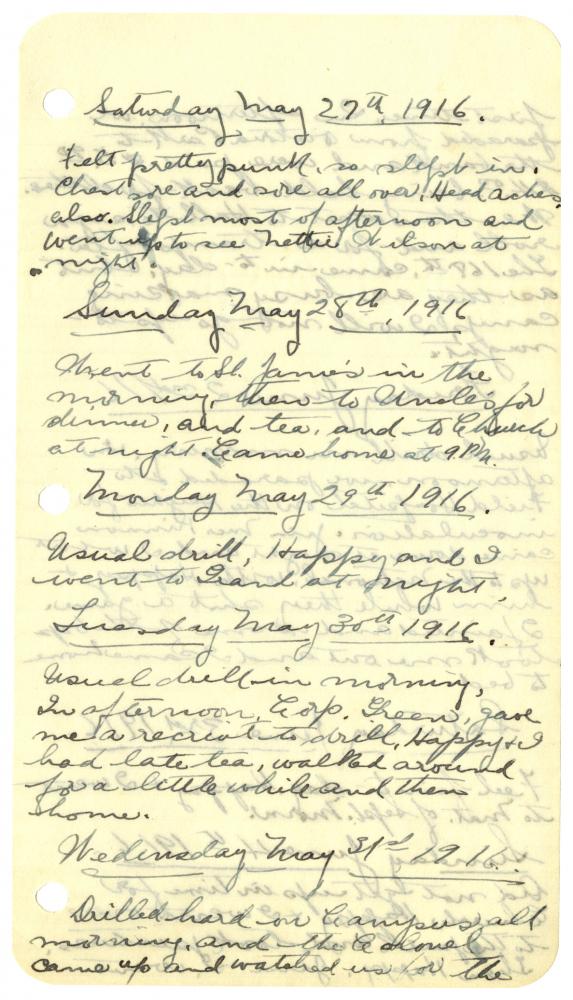 Saturday May 27th, 1916.
Felt pretty punk, so slept in.
Chest sore and sore all over, Head aches
also. Slept most of afternoon and
went up to see Nettie Wilson at
night.
Sunday May 28th, 1916
Went to St. James in the
morning, then to Uncles for
dinner, and tea, and to Church
at night. Came home at 9 P.M.
Monday May 29th 1916.
Usual drill, Happy and I
went to Grand at night,
Tuesday May 30th 1916.
Usual drill in morning,
In afternoon, Corp. Green, gave
me a recruit to drill, Happy & I
had late tea, walked around
for a little while and then
home.
Wednesday May 31st 1916.
Drilled hard on Campus all
morning, and the Colonel
came up and watched us for the